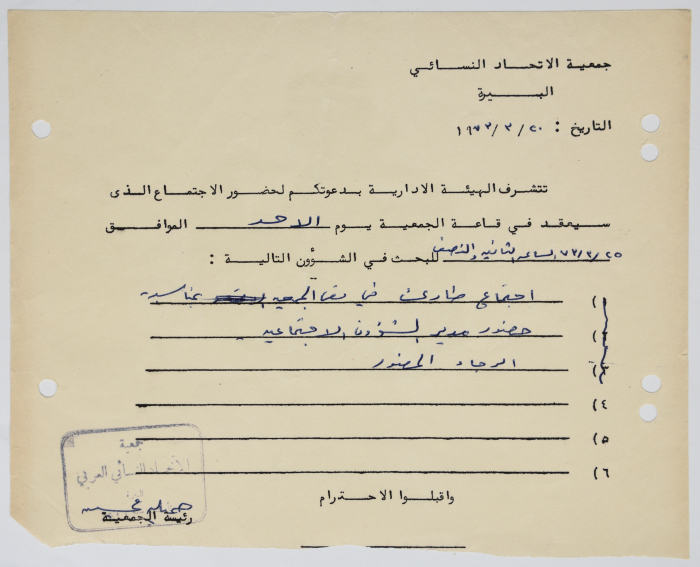 جمعية الاتحاد النسائي
البيرة
التاريخ : ٢٠/ ٣/ ١٩٧٣
تتشرف الهيئة الادارية بدعوتكم لحضور الاجتماع الذى
سيعقد في قاعة الجمعية يوم الاحد الموافق
٧٣/٣/٢٥ الساعة الثانية والنصف للبحث في الشؤون التالية :
١) اجتماع طارئ في مقر الجمعية بمناسبة
٢) حضور مدير الشؤون الاجتماعية
٣) الرجاء الحضور
٤)
٥)
٦)
واقبلوا الاحترام
جمعية
الاتحاد النسائي العربي
رئيسة الجمعية